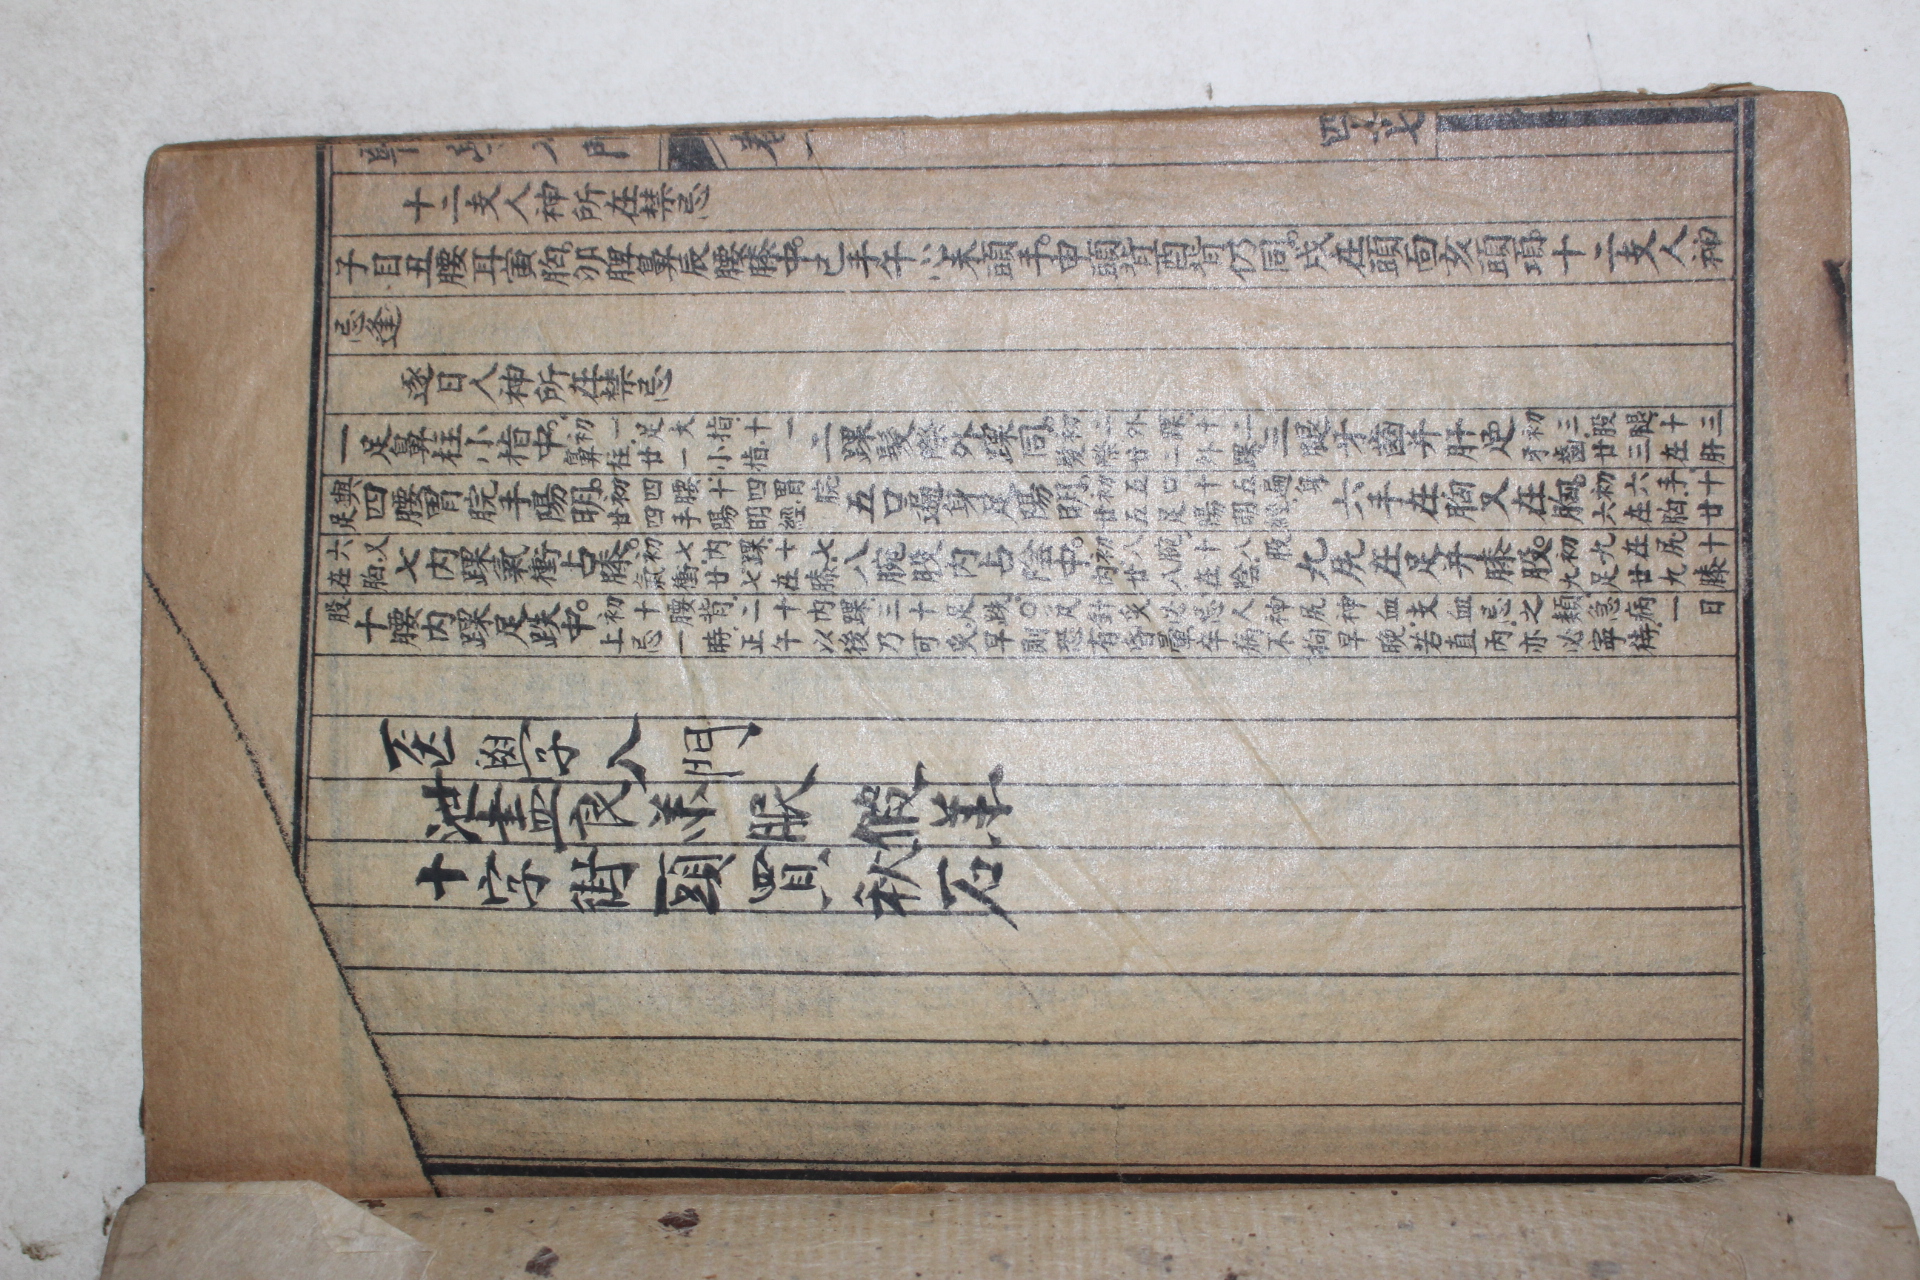 十二支人神所在禁忌
子目丑腰耳寅胸。卯脾鼻辰腰膝中。巳手午心未頭手。申頭背酉背仍同。戌在頭面亥頭項。十二支人神
忌逢
逐日人神所在禁忌
一足鼻柱小指中。初一足大指。十一鼻柱。廿一小指。二踝髮際外踝同。初二外踝。十二髮際廿二外踝。三腿牙齒并肝足初三股腿。十三牙齒。廿三在肝
與足四腰胃脘手陽明。初四腰。十四胃脘廿四手陽明經。五口遍身足陽明。初五口十五遍身廿五足陽明經。六手在胸又在胸。初六手。十六在胸廿
六又在胸。七內踝氣衝占膝。初七內踝。十七氣衝。廿七在膝。八腕股內占陰中。初八腕。十八股內。廿八在陰。九尻在足并膝股。初九在尻。十九足廿九膝
股十腰內踝足趺中。初十腰背。二十內踝。三十足趺。○凡針灸必忌人神尻神血支血忌之類。急病一日上忌一時。正午以後乃可灸。早則恐有昏暈。卒病不拘早晚。若直丙亦必寧待。
医學八門
泄盡良薬眠假羊
十字街頭買秋石
卷一
四十七